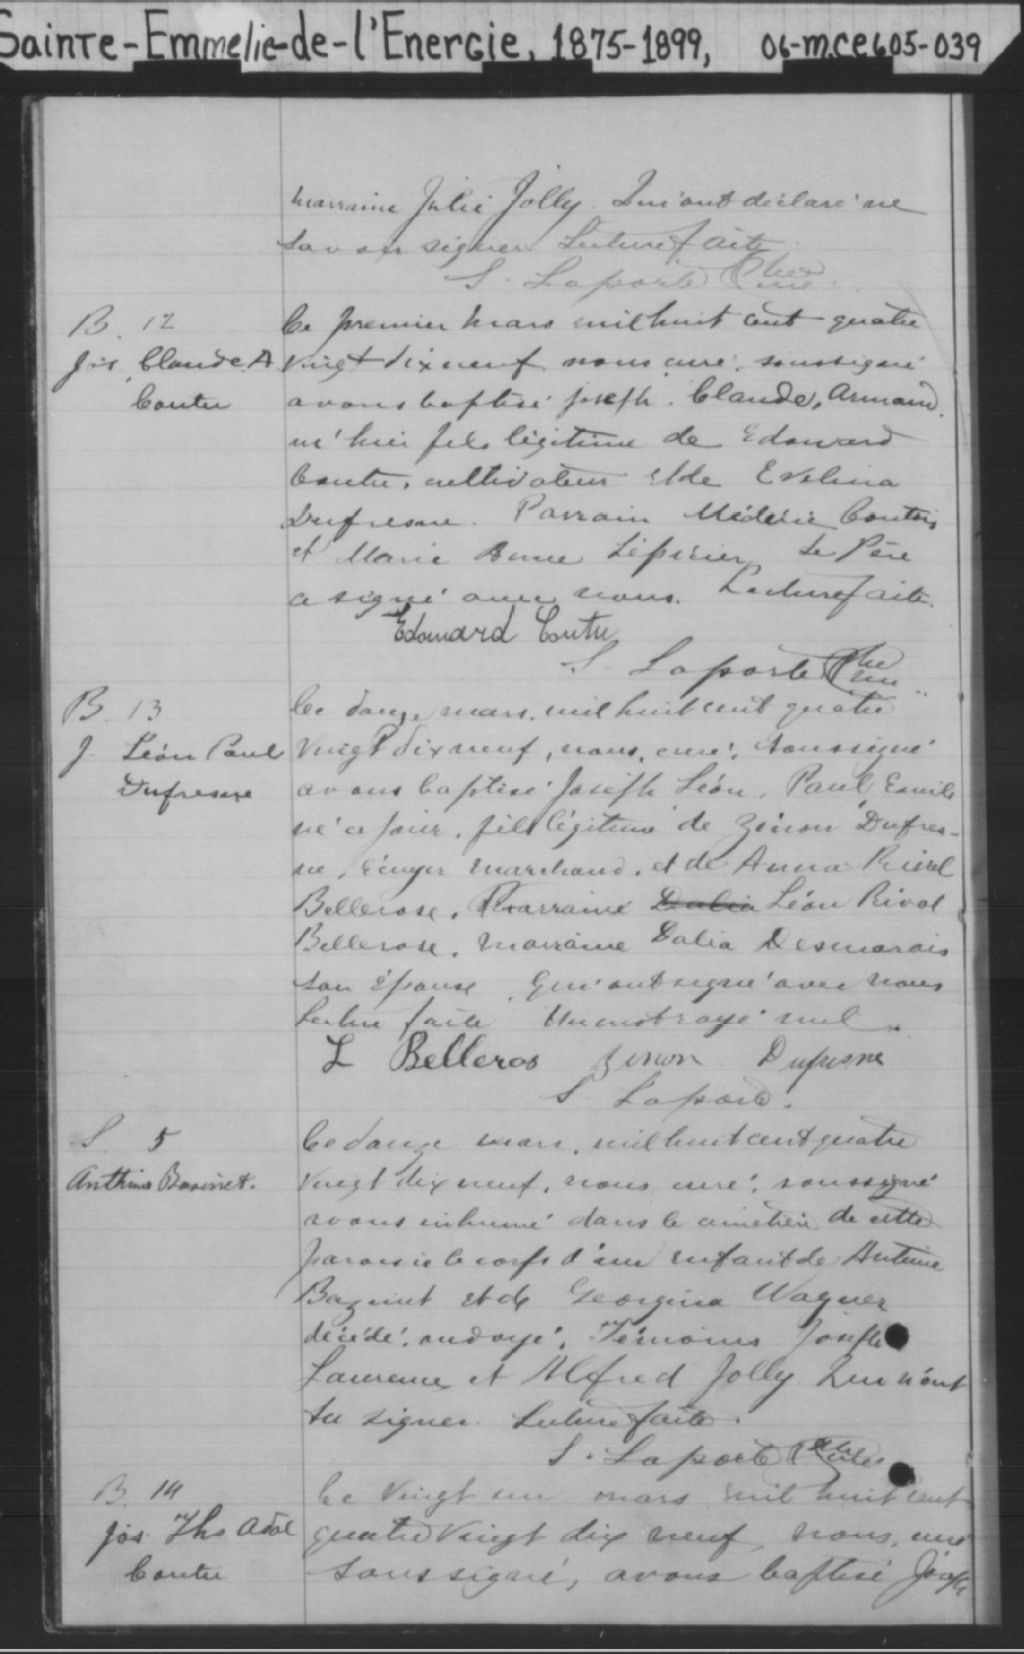 Sainte-Emmelie-de-l'Energie, 1875-1899, 06-m.ce605-039
marraine Julie Jolly. Qui ont déclaré ne
savoir signer Lecture faite.
S. Laporte Ptre curé
B. 12
Jos. Claude. A
Coutu
Ce premier mars mil huit cent quatre
vingt dix neuf nous curé, soussigné
avons baptisé joseph. Claude, Armand.
né hier fils légitime de Edouard
Coutu, cultivateur et de Evelina
Dufresne. Parrain Médéric Coutu,
et Marie Anne Lépicier Le Père
a signé avec nous. Lecture faite.
Edouard Coutu
S. Laporte Ptre curé
B. 13
J. Léon Paul
Dufresne
Ce douze mars, mil huit cent quatre
Vingt dix neuf, nous, curé, soussigné
avons baptisé Joseph Léon, Paul, Emile
né ce jour, fils légitime de Zénon Dufres-
ne, écuyer marchand, et de Anna Rival
Bellerose, Parrain Dalia Léon Rival
Bellerose, marraine Dalia Desmarais
son épouse, Qui ont signé avec nous
Lecture faite Un mot rayé nul
L Belleros Zenon Dufresne
S Laporte.
S. 5
Anthime Basinet.
Ce douze mars, mil huit cent quatre
Vingt dix neuf, nous curé, soussigné
avons inhumé dans le cimetière de cette
paroisse le corps d'un enfant de Antime
Bazinet et de Georgina Wagner
décédé, ondoyé, Témoins Joseph
Laurence et Alfred Jolly Qui n'ont
su signer. Lecture faite.
S. Laporte Ptre curé
B. 14
Jos. Ths Adol
Coutu
Ce Vingt un mars mil huit cent
quatre Vingt dix neuf, nous, curé
soussigné, avons baptisé Joseph